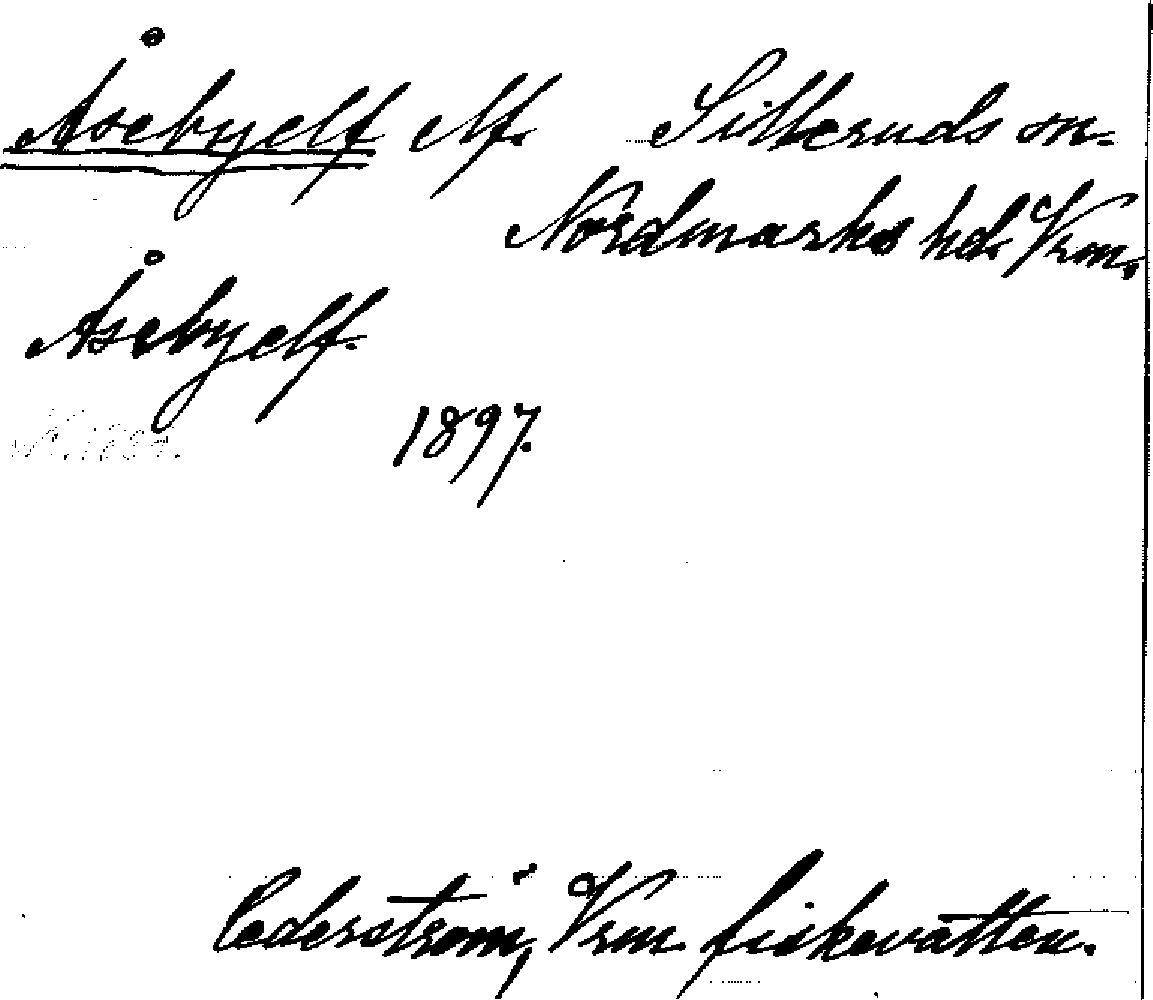 Åsebyelf Silleruds sn.
Nordmarks hd. Vrm.
Åsebyelf.
1897.
Cederström, Vrm. fiskevatten.